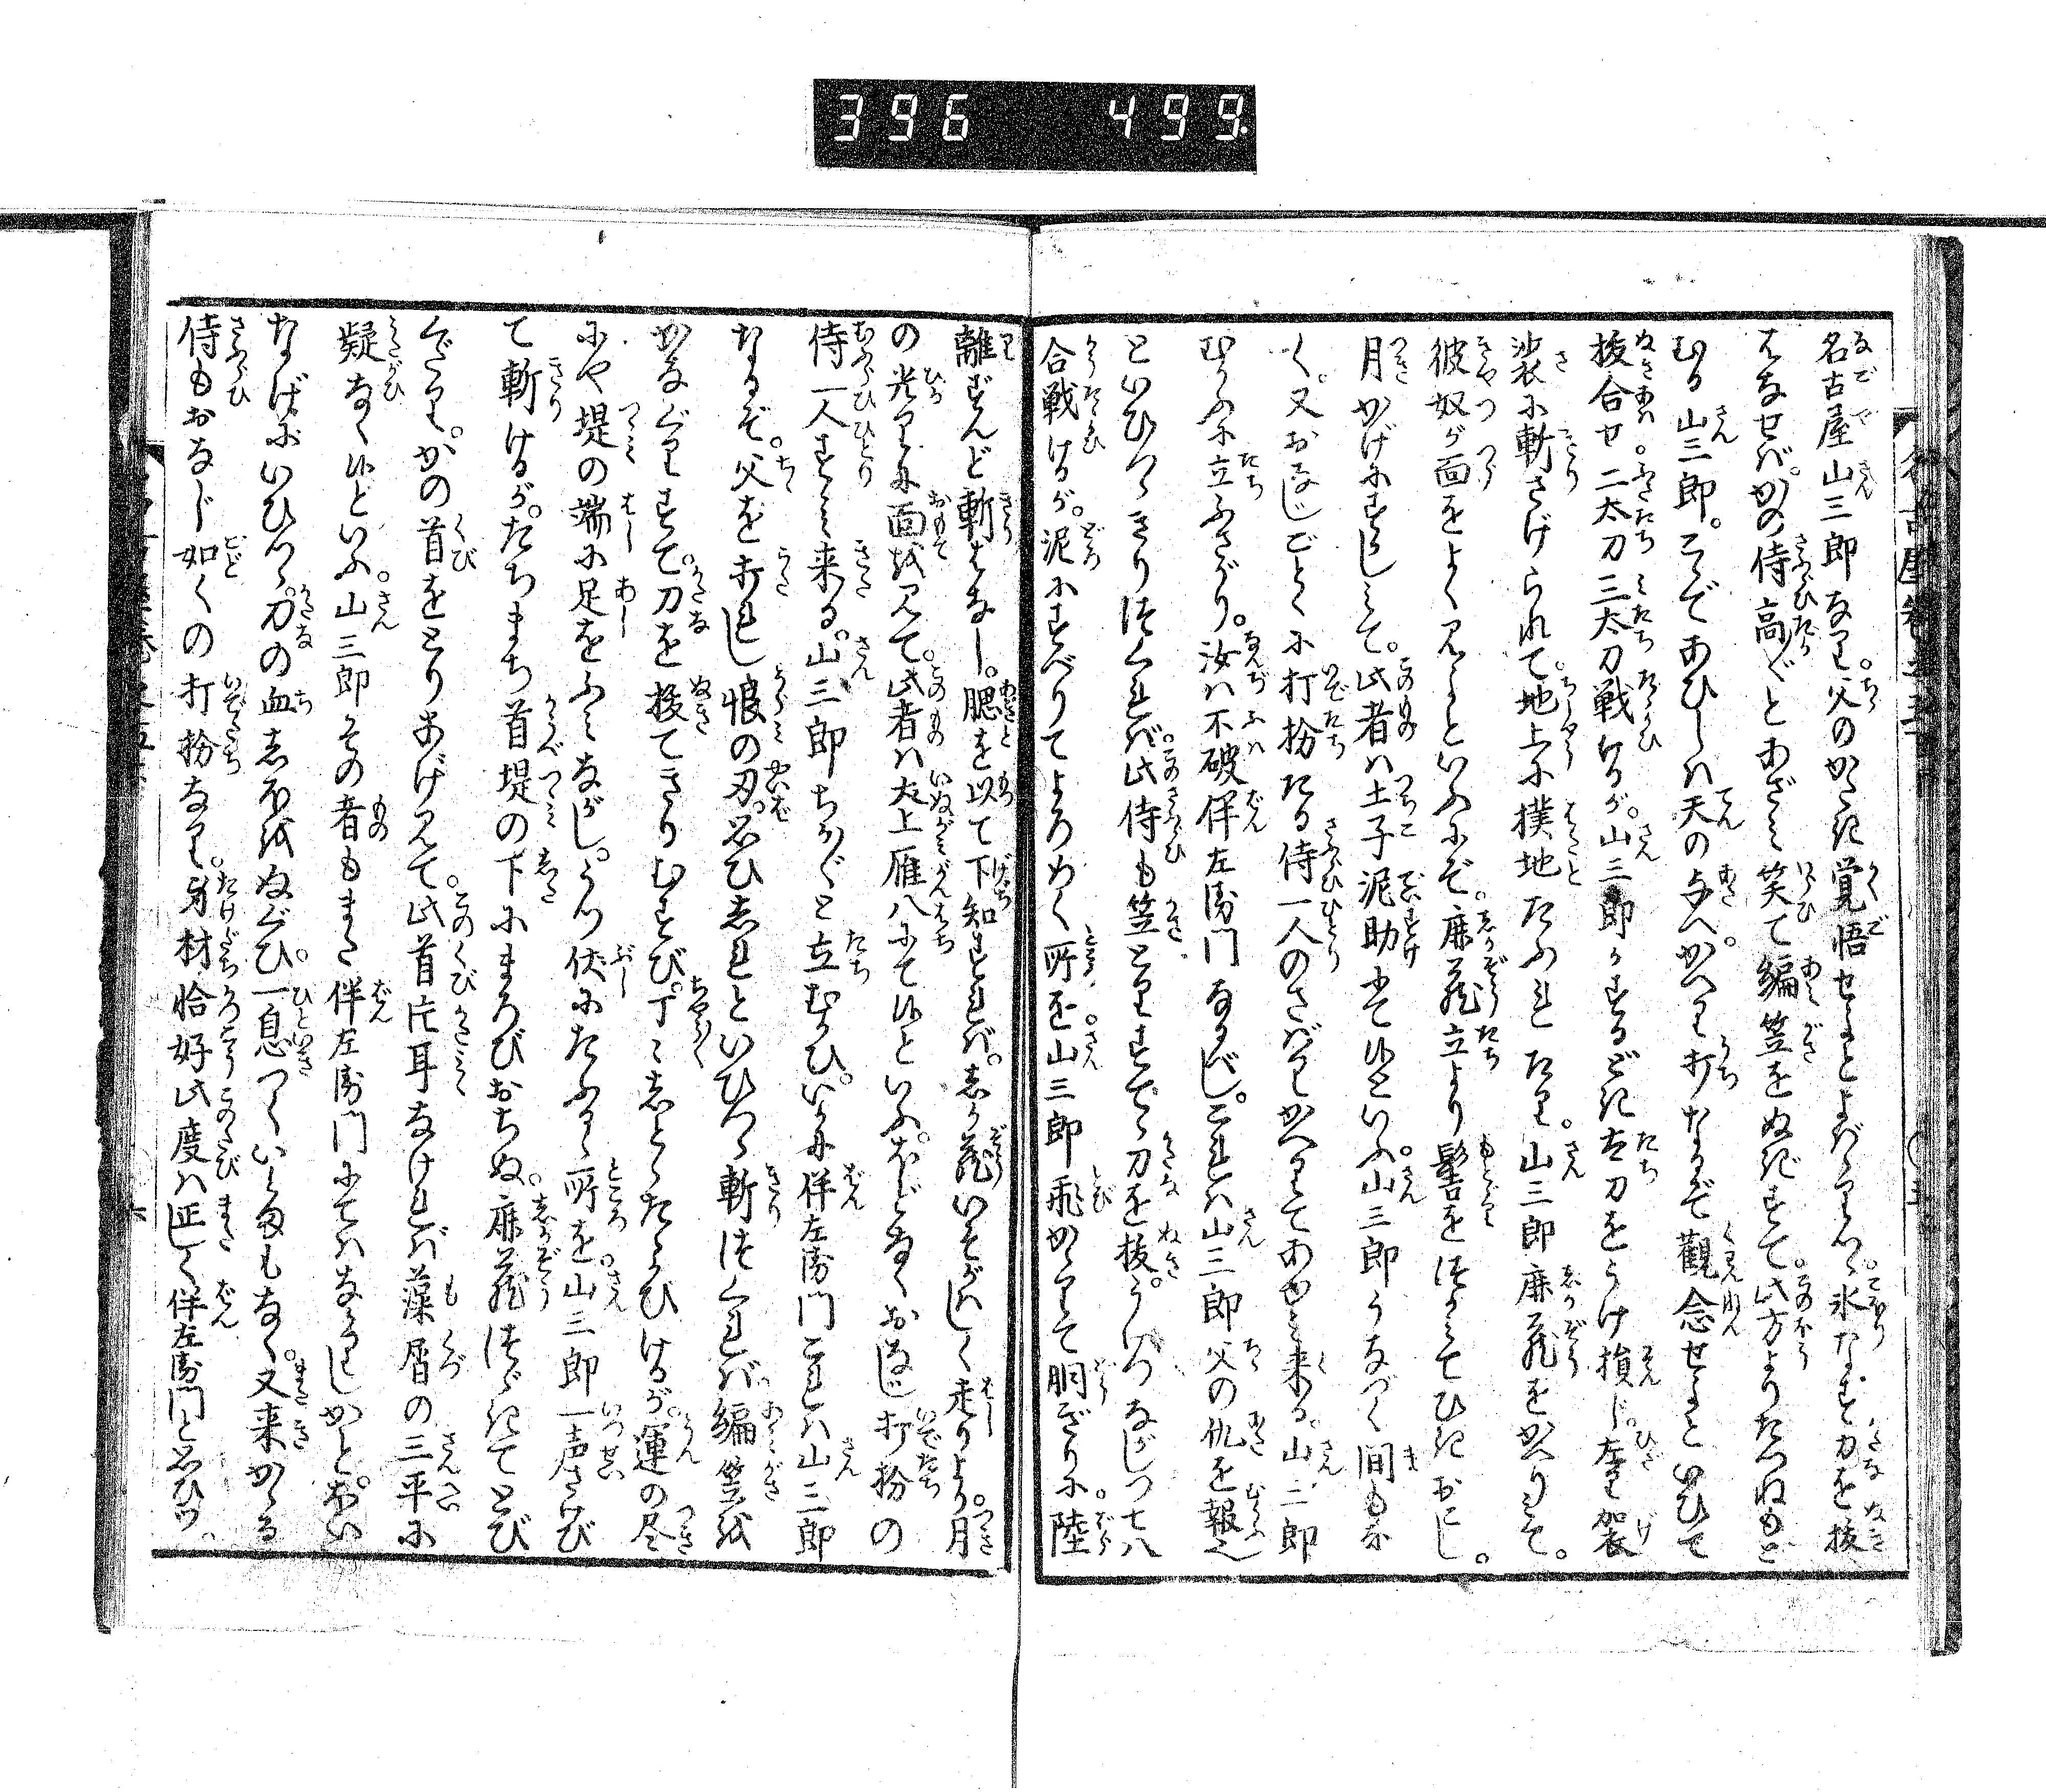 396 499
名古屋山三郎なり。父のかたき覚悟せよとよばゝりつゝ。氷なす刀を抜
はなせば。かの侍高〴〵とあざみ笑て編笠をぬぎすて。此方よりたづねもと
むる山三郎。こゝであひしは天の与へ。かへり打なるぞ観念せよといひて
抜合せ二太刀三太刀戦けるが。山三郎がするどき太刀をうけ損じ。左り袈
裟に斬さげられて。地上に撲地たふれたり。山三郎鹿蔵をかへり見て。
彼奴が面をよく見よといふにぞ。鹿蔵立より髻をつかみてひきおこし。
月かげにすかし見て。此者は土子泥助にて候といふ。山三郎うなづく間もな
く。又おなじごとくに打扮たる侍一人のさばりかへりてあゆみ来る。山三郎
むかふに立ふさがり。汝は不破伴左衛門なるべし。これは山三郎父の仇を報ふ
といひつゝきりつくれば。此侍も笠とりすてゝ刀を抜。うけつながしつ七八
合戦けるが。泥にすべりてよろめく所を。山三郎飛かゝりて胴ぎりに。陸
離ずんど斬はなし。腮を以て下知すれば。鹿蔵いそがはしく走りより。月
の光りに面を見て。此者は犬上雁八にて候といふ。ほどなくおなじ打扮の
侍一人すゝみ来る。山三郎ちか〴〵と立むかひ。いかに伴左衛門これは山三郎
なるぞ。父を打れし恨の刃。思ひしれといひつゝ斬つくれば。編笠を
かなぐりすて。刀を抜てきりむすび。丁〻しとゝたゝかひけるが。運の尽
にや堤の端に足をふみながし。うつ伏にたふるゝ所を。山三郎一声さけび
て斬けるが。たちまち首堤の下にまろびおちぬ。鹿蔵つゞきてとび
くだり。かの首をとりあげ見て。此首片耳なければ藻屑の三平に
疑なく候といふ。山三郎その者もまた伴左衛門にてはなかりしかと。ほい
なげにいひつゝ。刀の血しほをぬぐひ。一息つくいとまもなく。又来かゝる
侍もおなじ如くの打扮なり。身材恰好此度は正しく伴左衛門と思ひツ。